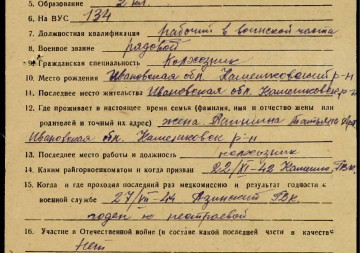 5. Образование 2 кл.
6. № ВУС 134
7. Должностная квалификация рабочий в воинской части
8. Военное звание рядовой
9. Гражданская специальность Колхозник
10. Место рождения Ивановская обл. Камешковский р-н
11. Последнее место жительства Ивановская обл. Камешковск. р-н
12. Где проживает в настоящее время семья (фамилия, имя и отчество жены или
родителей и точный их адрес) жена Татьяна
Ивановская обл. Камешковск р-н
13. Последнее место работы и должность колхозник
14. Каким райгорвоенкоматом и когда призван 22/ -42 Камешк. РВК.
15. Когда и где проходил последний раз медкомиссию и результат годности к
военной службе 27/VII-44 РВК
годен к нестроевой
16. Участие в Отечественной войне (в составе какой последней части в качестве
Нет